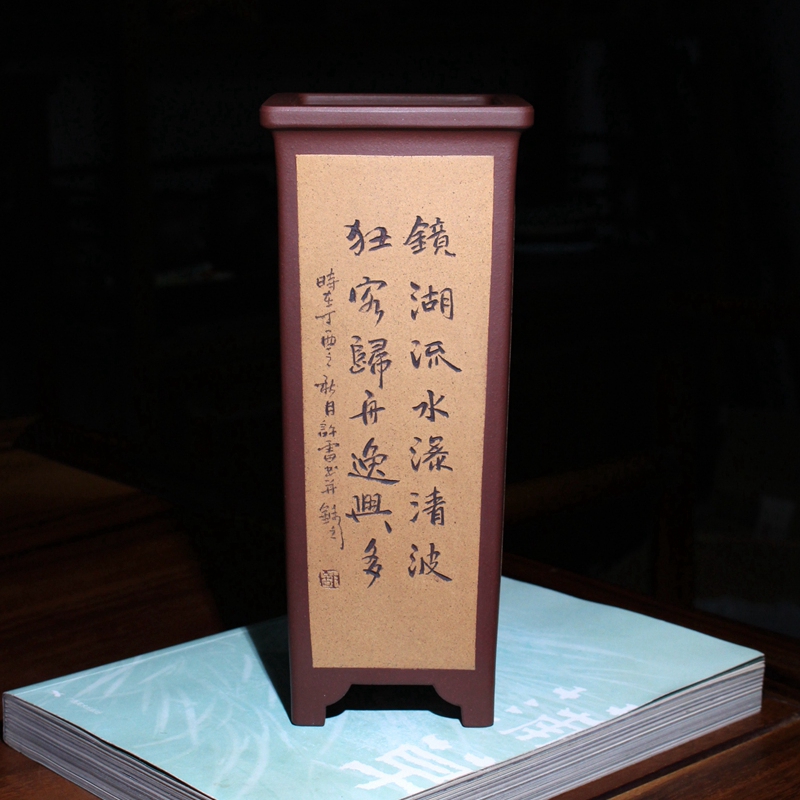 鏡湖流水漾清波
狂客歸舟逸興多
時在丁酉之秋月許雷書并錦之